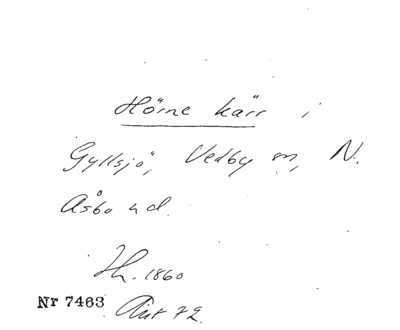 Hörne kärr i
Gyllsjö, Vedby sn, N.
Åsbo hd.
Hh. 1860
Nr 7463 Rut 72.